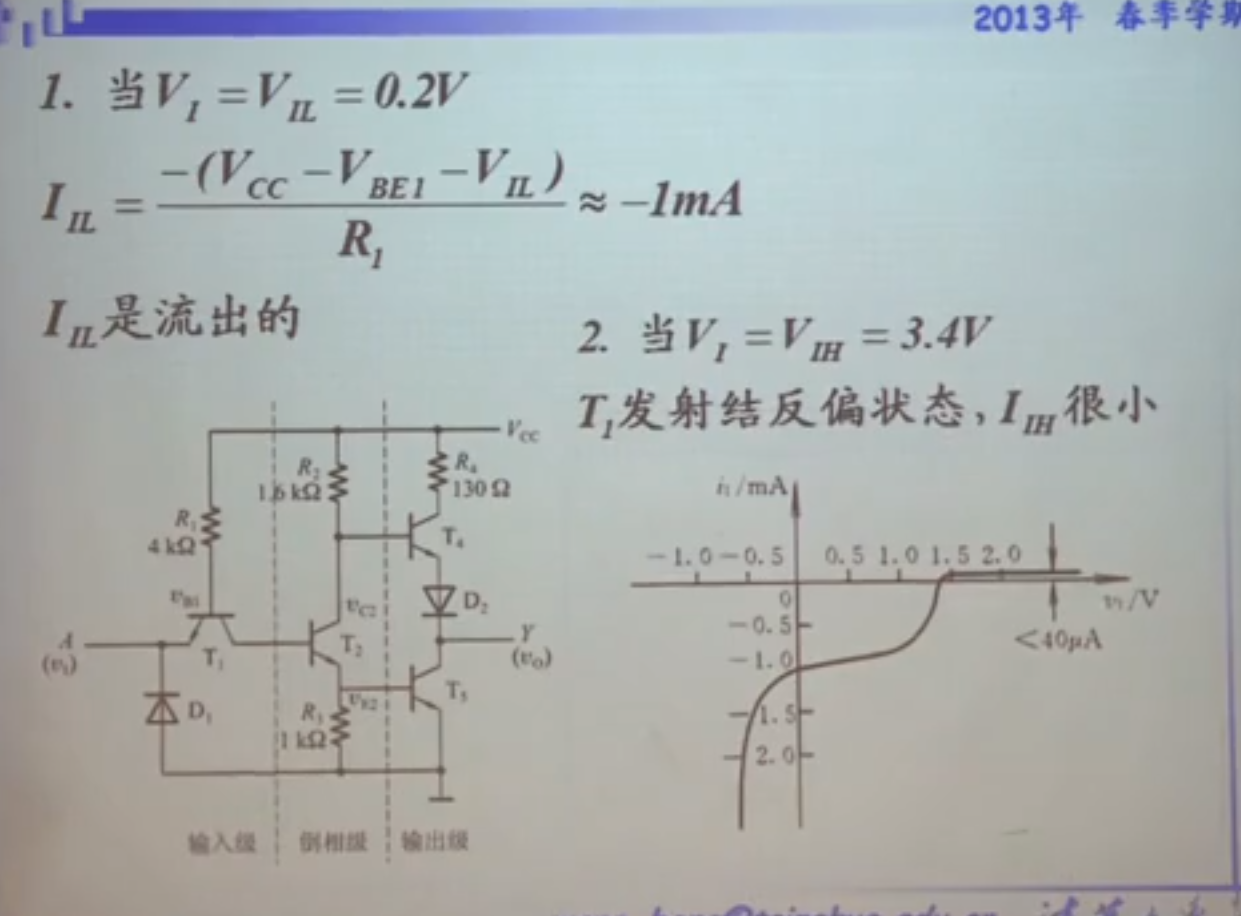 2013年 春季学期
1. 当V_I = V_IL = 0.2V
I_IL = -(V_CC - V_BE1 - V_IL) / R_1 ≈ -1mA
I_IL是流出的
2. 当V_I = V_IH = 3.4V
T_1发射结反偏状态, I_IH很小
V_CC
R_2
1.6 kΩ
R_4
130 Ω
R_1
4 kΩ
T_4
v_B1
v_C2
D_2
A
(v_I)
T_1
T_2
Y
(v_O)
D_1
v_E2
T_5
R_3
1 kΩ
输入级 倒相级 输出级
i_I/mA
-1.0 -0.5 0.5 1.0 1.5 2.0
0
v_I/V
-0.5
<40μA
-1.0
1.5
2.0